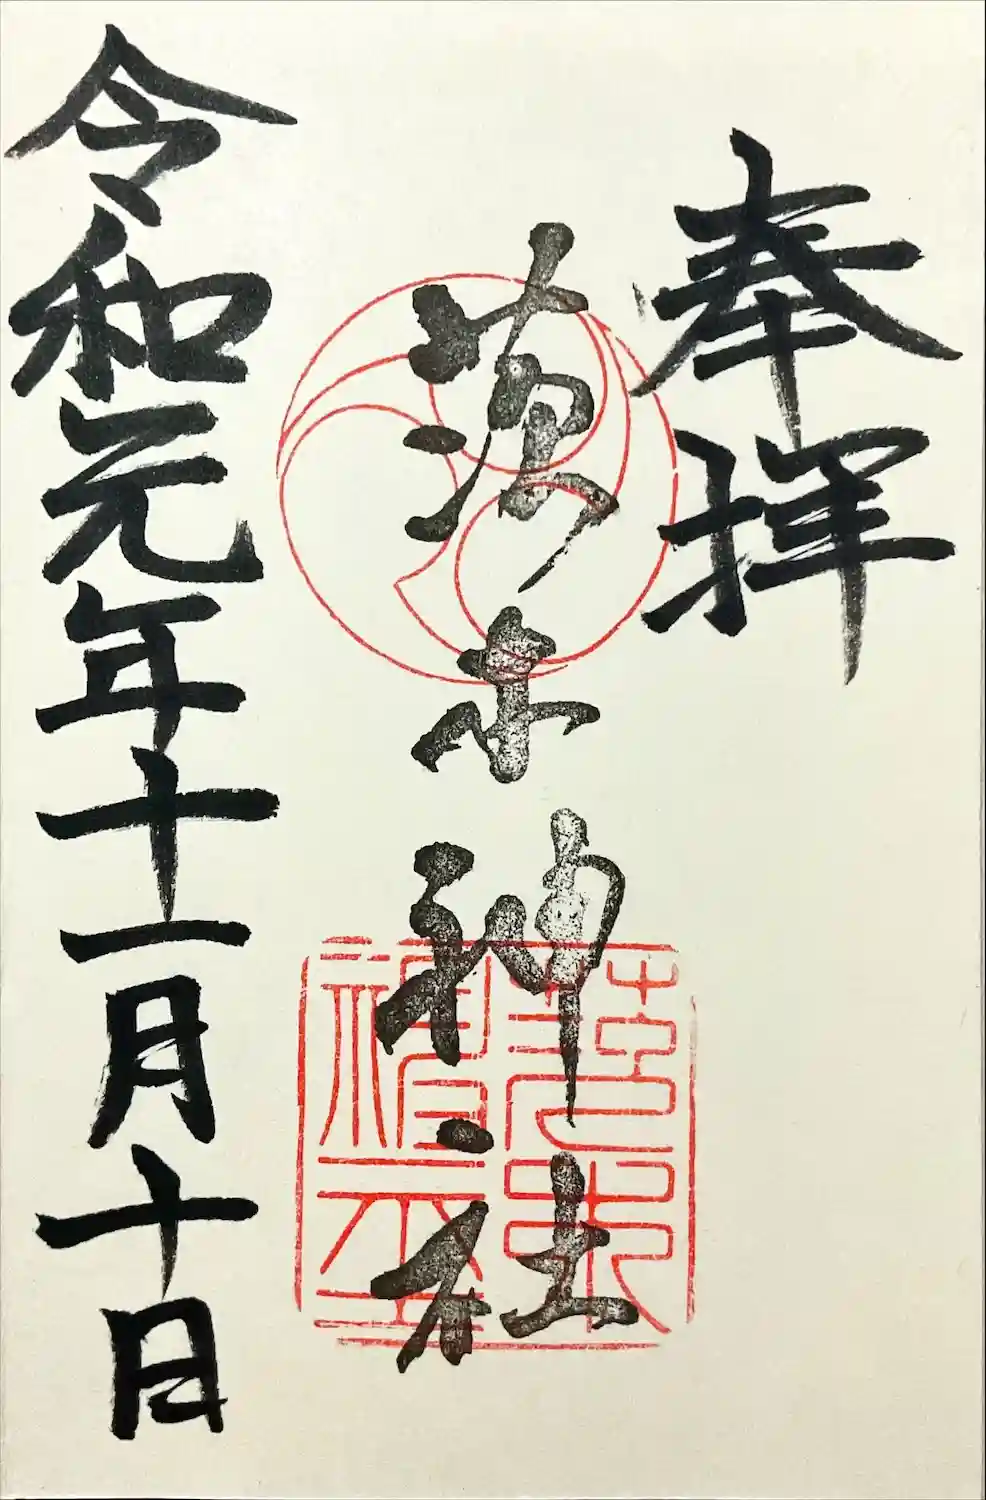 奉拝
神社
令和元年十一月十日